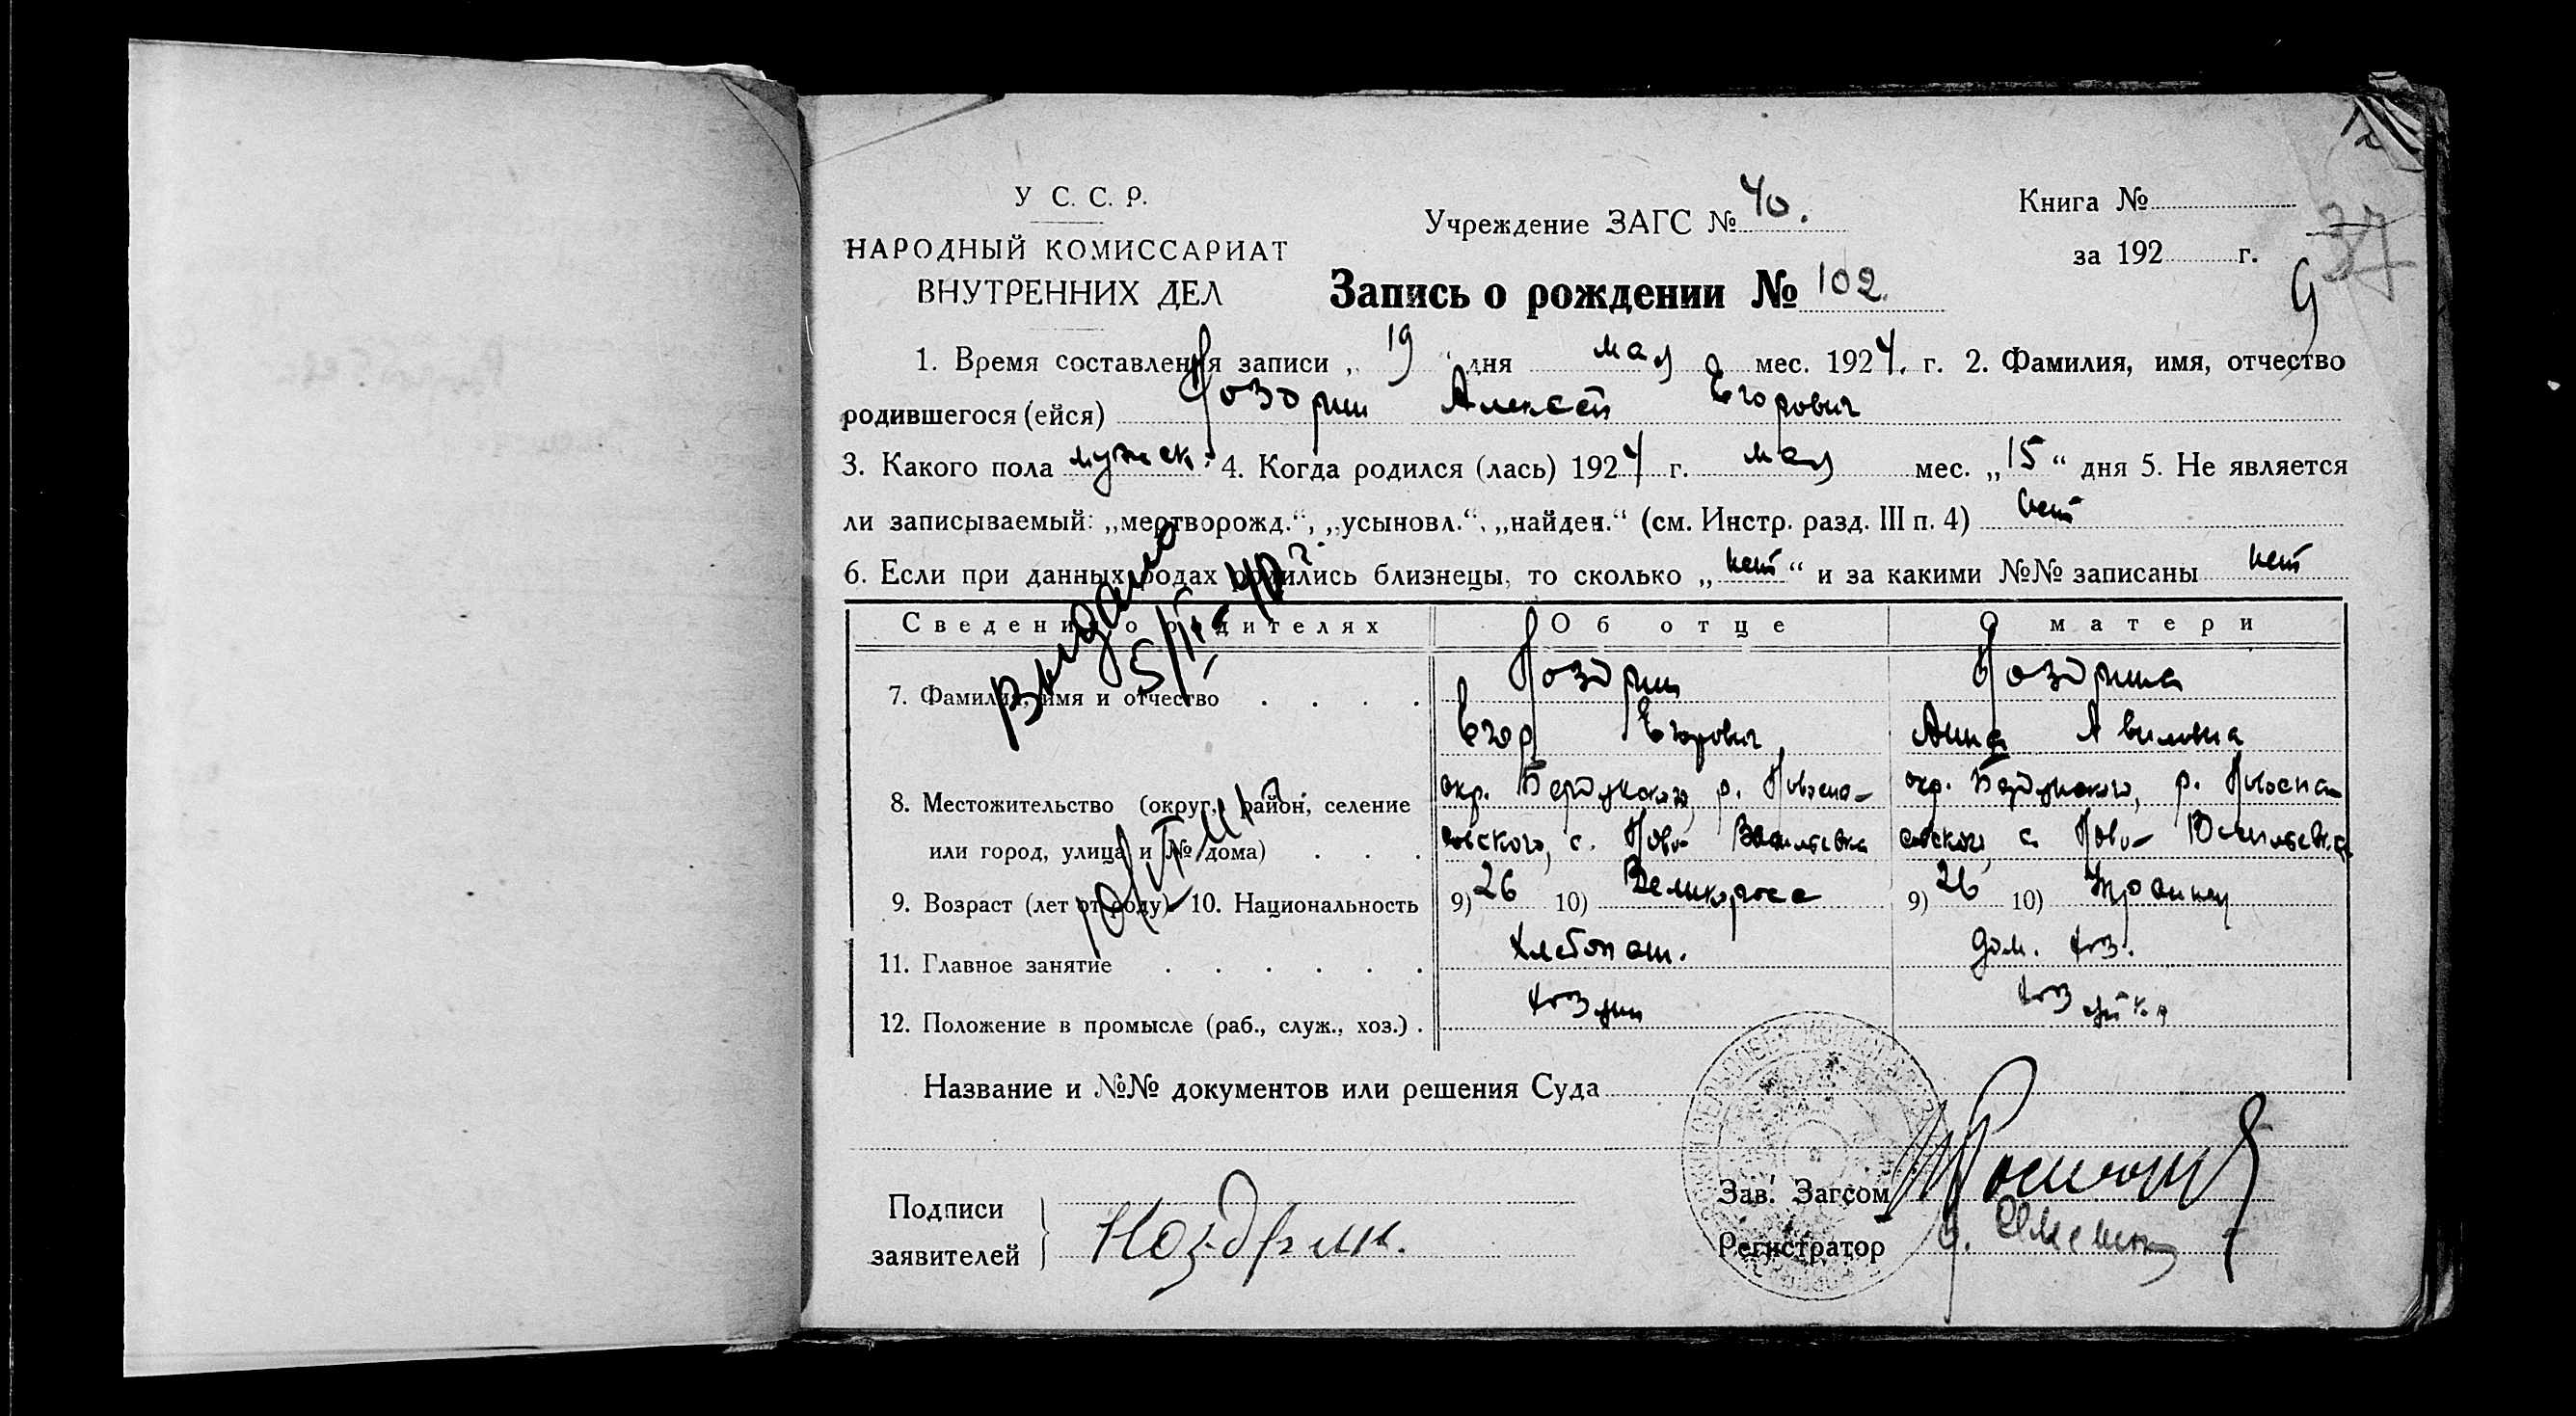 У С. С. Р.
НАРОДНЫЙ КОМИССАРИАТ
ВНУТРЕННИХ ДЕЛ
Учреждение ЗАГС № 40.
Книга №
за 192 г.
37
9
Запись о рождении № 102.
1. Время составления записи „ 19 “ дня мая мес. 1924. г. 2. Фамилия, имя, отчество
родившегося (ейся) Ноздрин Алексей Егорович
3. Какого пола мужск. 4. Когда родился (лась) 1924 г. мая мес. „15“ дня 5. Не является
ли записываемый: „мертворожд.“, „усыновл.“, „найден.“ (см. Инстр. разд. III п. 4) нет
6. Если при данных родах родились близнецы, то сколько „нет“ и за какими №№ записаны нет
Выдано
Сведения о родителях Об отце О матери
7. Фамилия, имя и отчество Ноздрин Ноздрина
Егор Егорович Анна
8. Местожительство (округ, район, селение окр. Бердянского, р. Новоспа- окр. Бердянского, р. Новоспа-
или город, улица и № дома) совского, с. Ново-Васильевка совского с. Ново-Васильевка
9. Возраст (лет от роду) 10. Национальность 9) 26 10) Великоросс 9) 26 10)
11. Главное занятие Хлебопаш. дом. хоз.
12. Положение в промысле (раб., служ., хоз.) хозяин хозяйка
Название и №№ документов или решения Суда
Подписи
заявителей Ноздрин.
Зав. Загсом
Регистратор